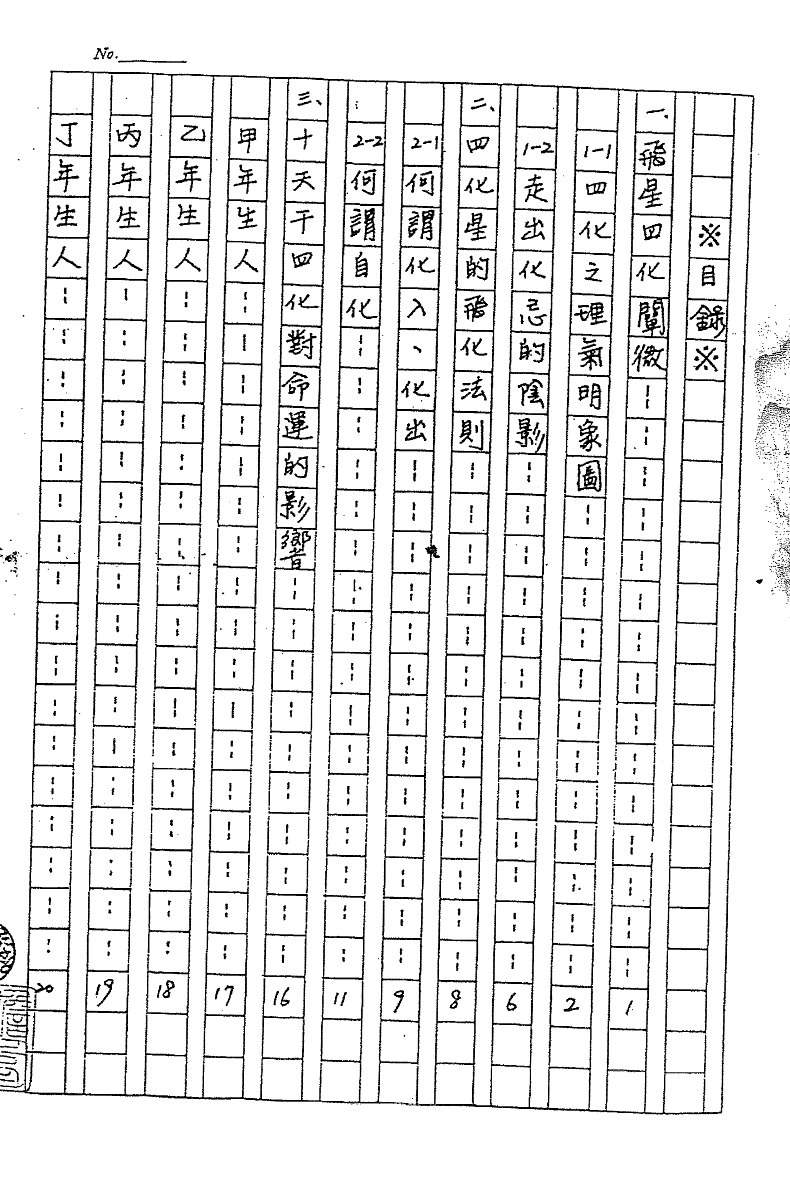 No.
※目錄※
一、飛星四化闡微 1
1-1四化之理氣明象圖 2
1-2走出化忌的陰影 6
二、四化星的飛化法則 8
2-1何謂化入、化出 9
2-2何謂自化 11
三、十天干四化對命運的影響 16
甲年生人 17
乙年生人 18
丙年生人 19
丁年生人 20